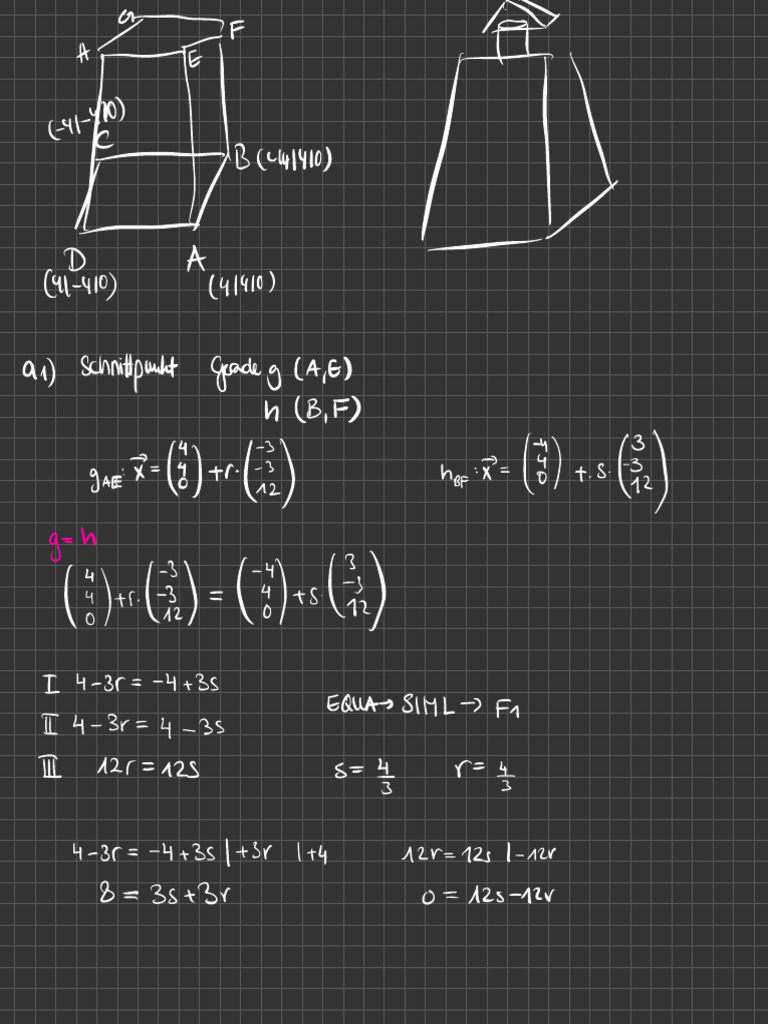 G
F
A
E
(-4|-4|0)
C
B (-4|4|0)
D
A
(4|-4|0)
(4|4|0)
a1) Schnittpunkt Grade g (A,E)
h (B,F)
g_AE: x⃗ = (4 4 0) + r·(-3 -3 12)
h_BF: x⃗ = (-4 4 0) + s·(3 -3 12)
g=h
(4 4 0) + r·(-3 -3 12) = (-4 4 0) + s·(3 -3 12)
I 4-3r = -4+3s
II 4-3r = 4-3s
III 12r = 12s
EQUA → SIML → F1
s = 4/3 r = 4/3
4-3r = -4+3s |+3r |+4
8 = 3s+3r
12r = 12s |-12r
0 = 12s-12r